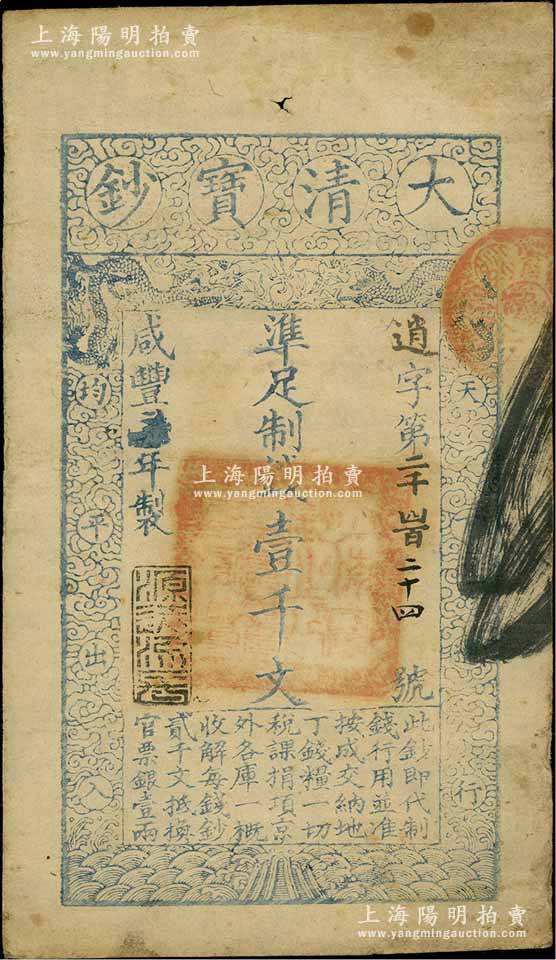 上海陽明拍賣
www.yangmingauction.com
大清寶鈔
天 行
逍字第二千 百二十四號
準足制 壹千文
咸豐 年製
均平出入
此鈔即代制
錢行用並准
按成交納地
丁錢糧一切
稅課捐項京
外各庫一概
收解每錢鈔
貳千文抵換
官票銀壹兩
上海陽明拍賣
www.yangmingauction.com
上海陽明拍賣
www.yangmingauction.com